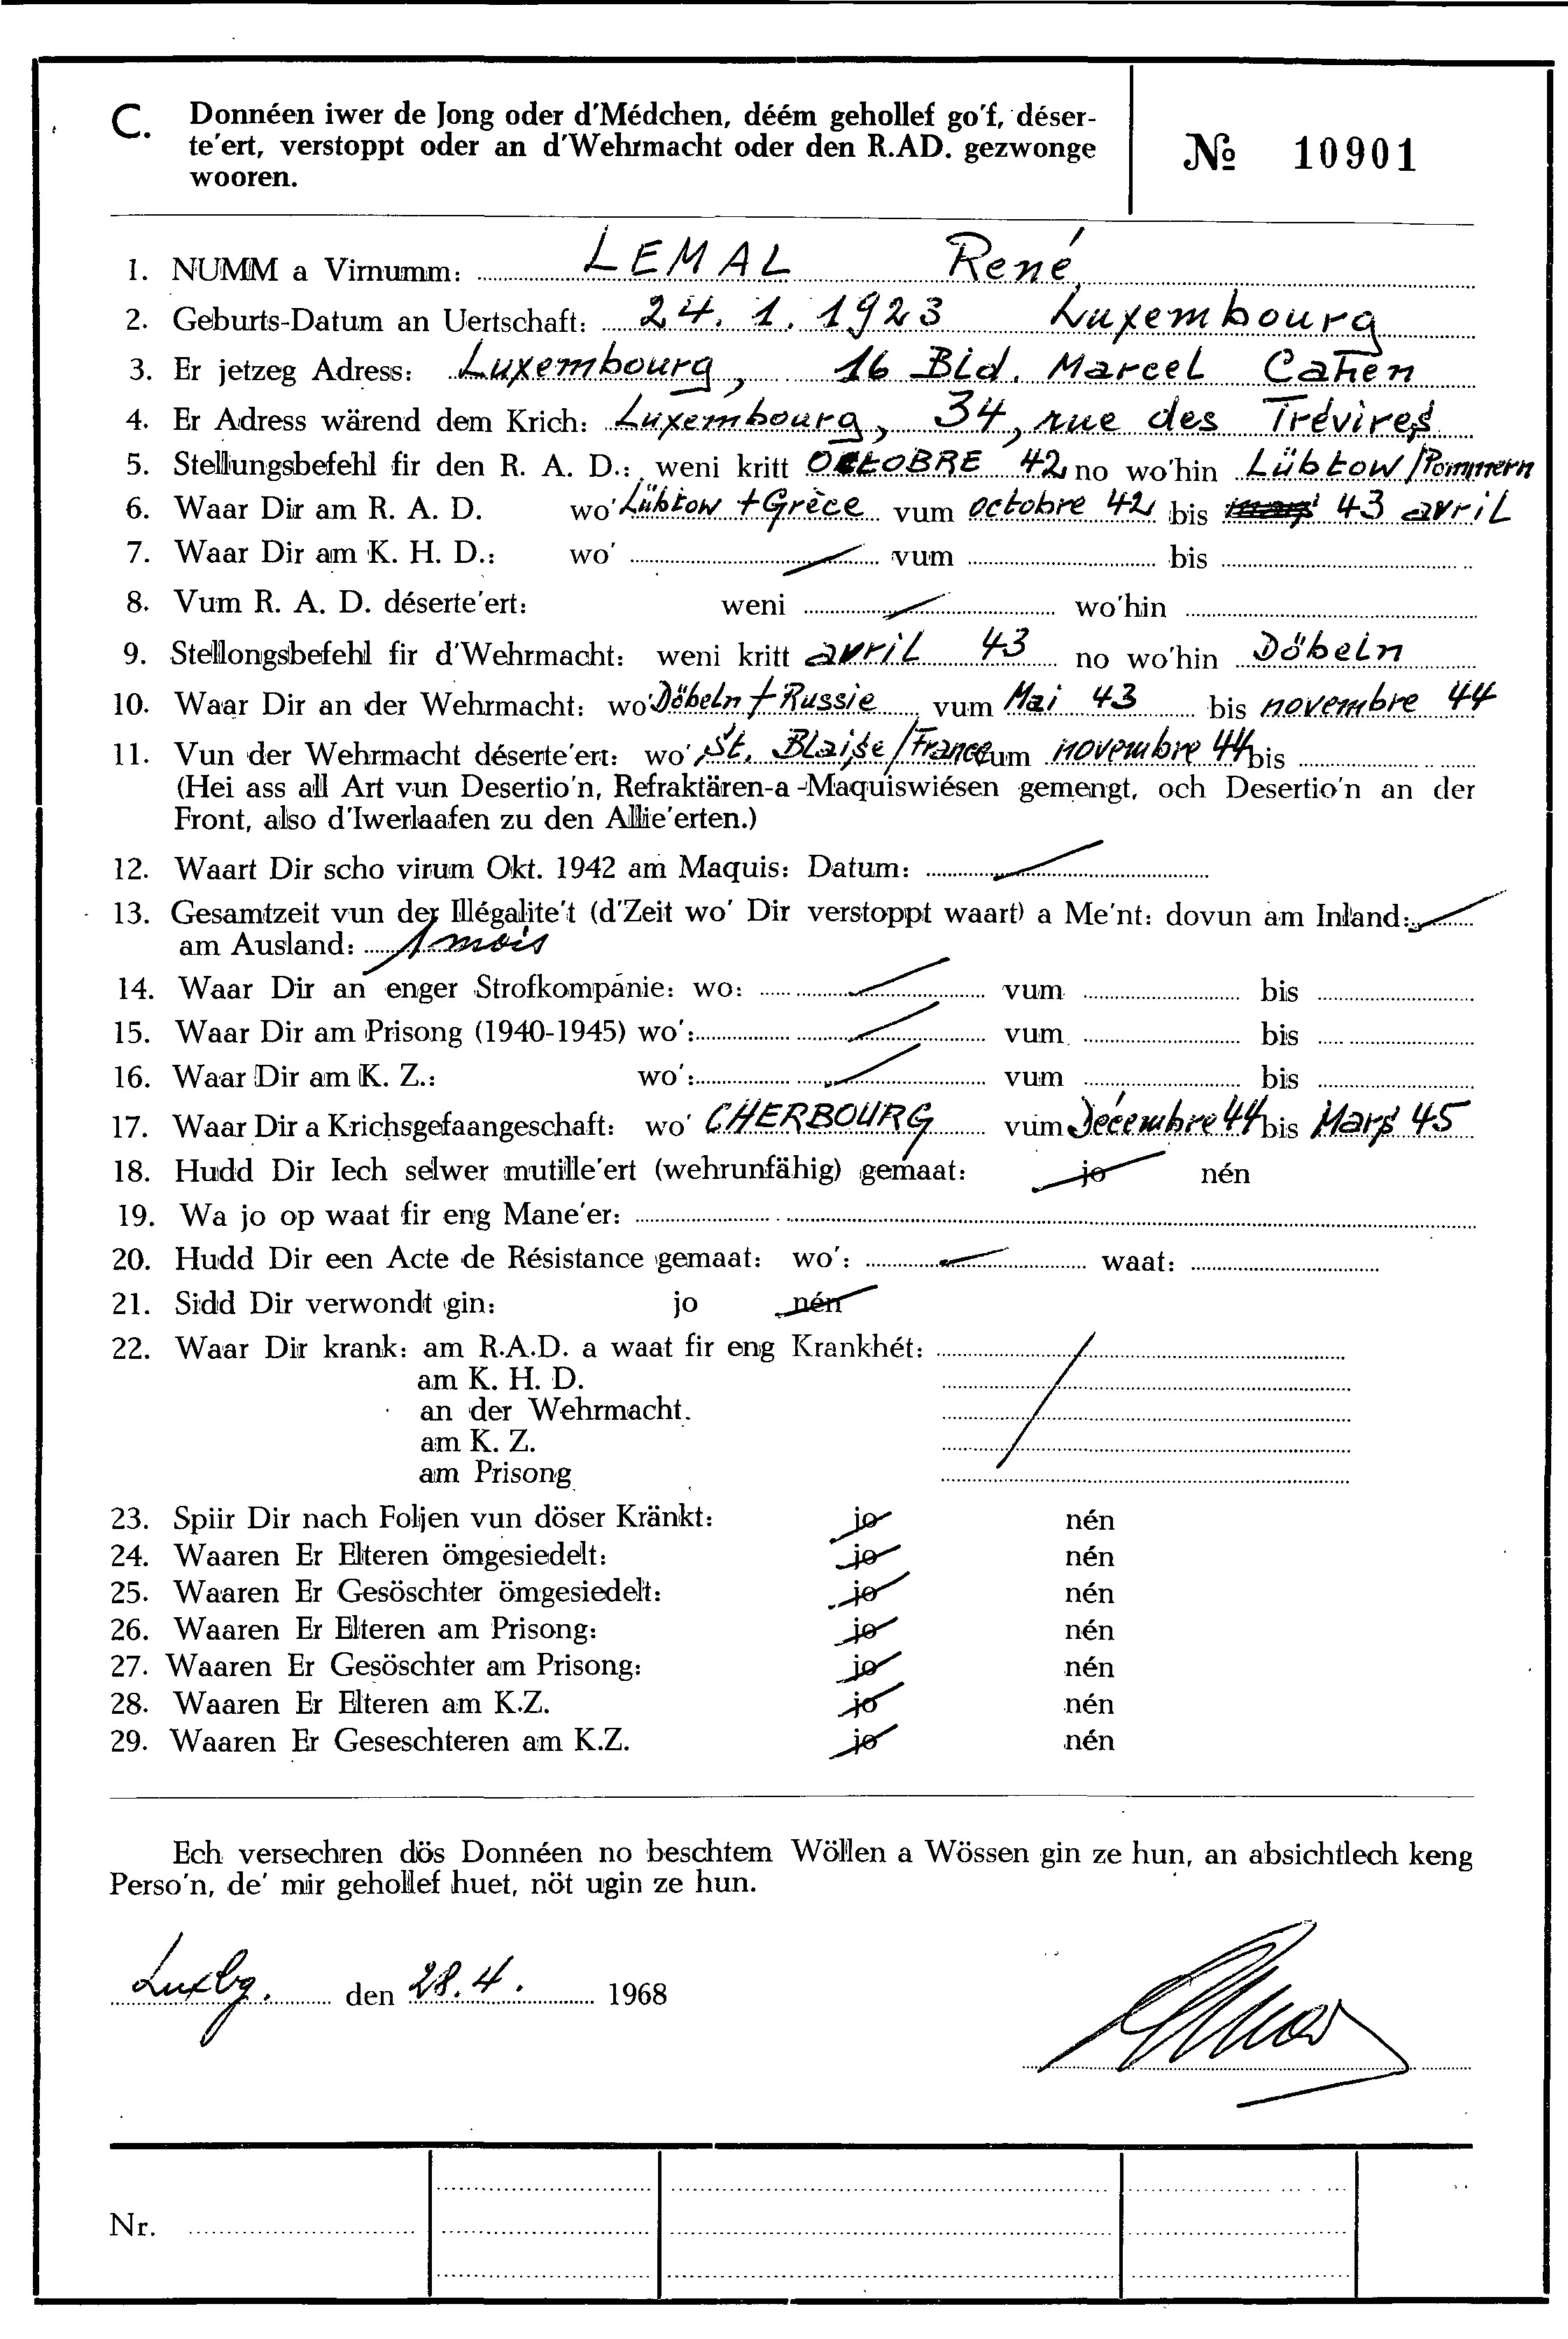 C. Donnéen iwer de Jong oder d'Médchen, déém gehollef go'f, déser-
te'ert, verstoppt oder an d'Wehrmacht oder den R.AD. gezwonge
wooren.
№ 10901
1. NUMM a Virnumm: LEMAL René
2. Geburts-Datum an Uertschaft: 24. 1. 1923 Luxembourg
3. Er jetzeg Adress: Luxembourg, 16 Bld. Marcel Cahen
4. Er Adress wärend dem Krich: Luxembourg, 34, rue des Trévires
5. Stellungsbefehl fir den R. A. D.: weni kritt OCTOBRE 42 no wo'hin Lübtow/Pommern
6. Waar Dir am R. A. D. wo' Lübtow + Grèce vum octobre 42 bis mars 43 avril
7. Waar Dir am K. H. D.: wo' vum bis
8. Vum R. A. D. déserte'ert: weni wo'hin
9. Stellongsbefehl fir d'Wehrmacht: weni kritt avril 43 no wo'hin Döbeln
10. Waar Dir an der Wehrmacht: wo' Döbeln + Russie vum Mai 43 bis novembre 44
11. Vun der Wehrmacht déserte'ert: wo' St. Blaise/France vum novembre 44 bis
(Hei ass all Art vun Desertio'n, Refraktären-a-Maquiswiésen gemengt, och Desertio'n an der
Front, also d'Iwerlaafen zu den Allie'erten.)
12. Waart Dir scho virum Okt. 1942 am Maquis: Datum:
13. Gesamtzeit vun der Illégalite't (d'Zeit wo' Dir verstoppt waart) a Me'nt: dovun am Inland:
am Ausland: 1 mois
14. Waar Dir an enger Strofkompánie: wo: vum bis
15. Waar Dir am Prisong (1940-1945) wo': vum bis
16. Waar Dir am K. Z.: wo': vum bis
17. Waar Dir a Krichsgefaangeschaft: wo' CHERBOURG vum Décembre 44 bis Mars 45
18. Hudd Dir Iech selwer mutille'ert (wehrunfähig) gemaat: jo nén
19. Wa jo op waat fir eng Mane'er:
20. Hudd Dir een Acte de Résistance gemaat: wo': waat:
21. Sidd Dir verwondt gin: jo nén
22. Waar Dir krank: am R.A.D. a waat fir eng Krankhét:
am K. H. D.
an der Wehrmacht.
am K. Z.
am Prisong
23. Spiir Dir nach Foljen vun döser Kränkt: jo nén
24. Waaren Er Elteren ömgesiedelt: jo nén
25. Waaren Er Gesöschter ömgesiedelt: jo nén
26. Waaren Er Elteren am Prisong: jo nén
27. Waaren Er Gesöschter am Prisong: jo nén
28. Waaren Er Elteren am K.Z. jo nén
29. Waaren Er Geseschteren am K.Z. jo nén
Ech versechren dös Donnéen no beschtem Wöllen a Wössen gin ze hun, an absichtlech keng
Perso'n, de' mir gehollef huet, nöt ugin ze hun.
Luxbg. den 28.4. 1968
Nr.